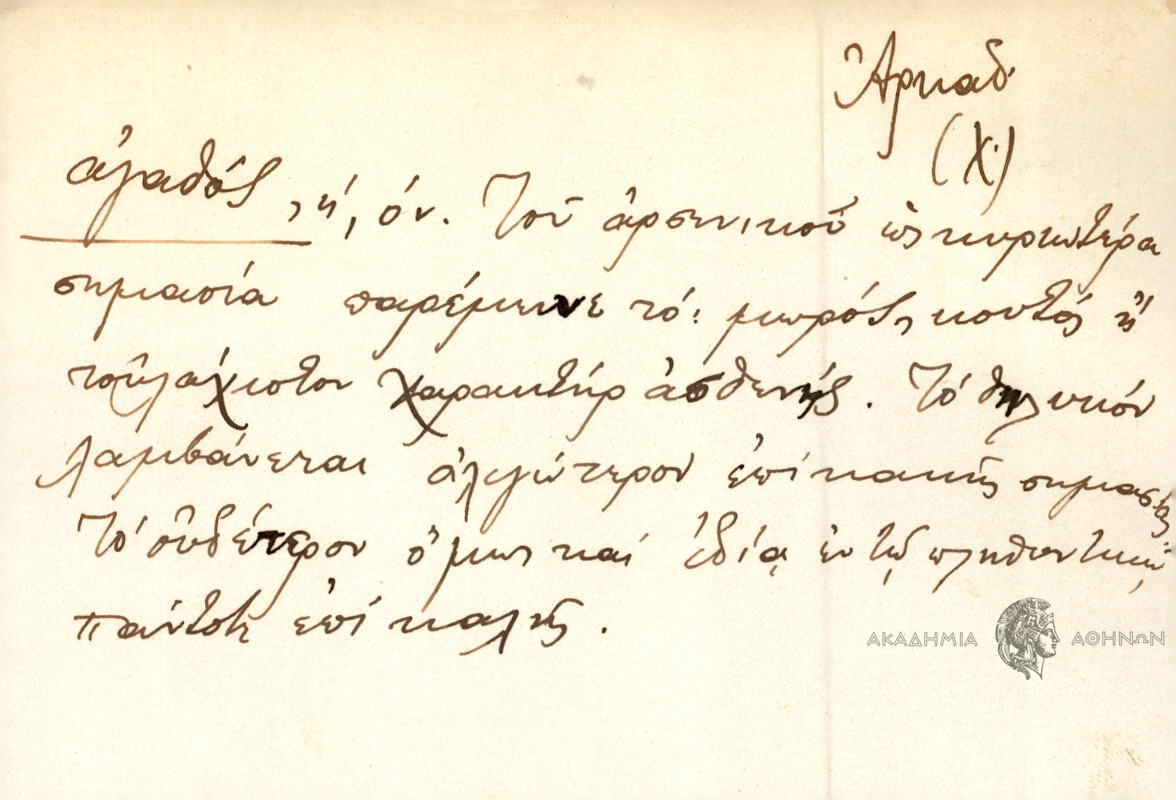 Ἀρκαδ.
(Χ.)
ἀγαθός, ή, όν. Τοῦ ἀρσενικοῦ ὡς κυριωτέρα
σημασία παρέμεινε τό: μωρός, κουτός ἤ
τοὐλάχιστον χαρακτήρ ἀσθενής. Τό θηλυκόν
λαμβάνεται ὀλιγώτερον ἐπί κακῆς σημασίας
Τό οὐδέτερον ὅμως καί ἰδίᾳ ἐν τῷ πληθυντικῷ
πάντοτε ἐπί καλῆς.
ΑΚΑΔΗΜΙΑ ΑΘΗΝΩΝ